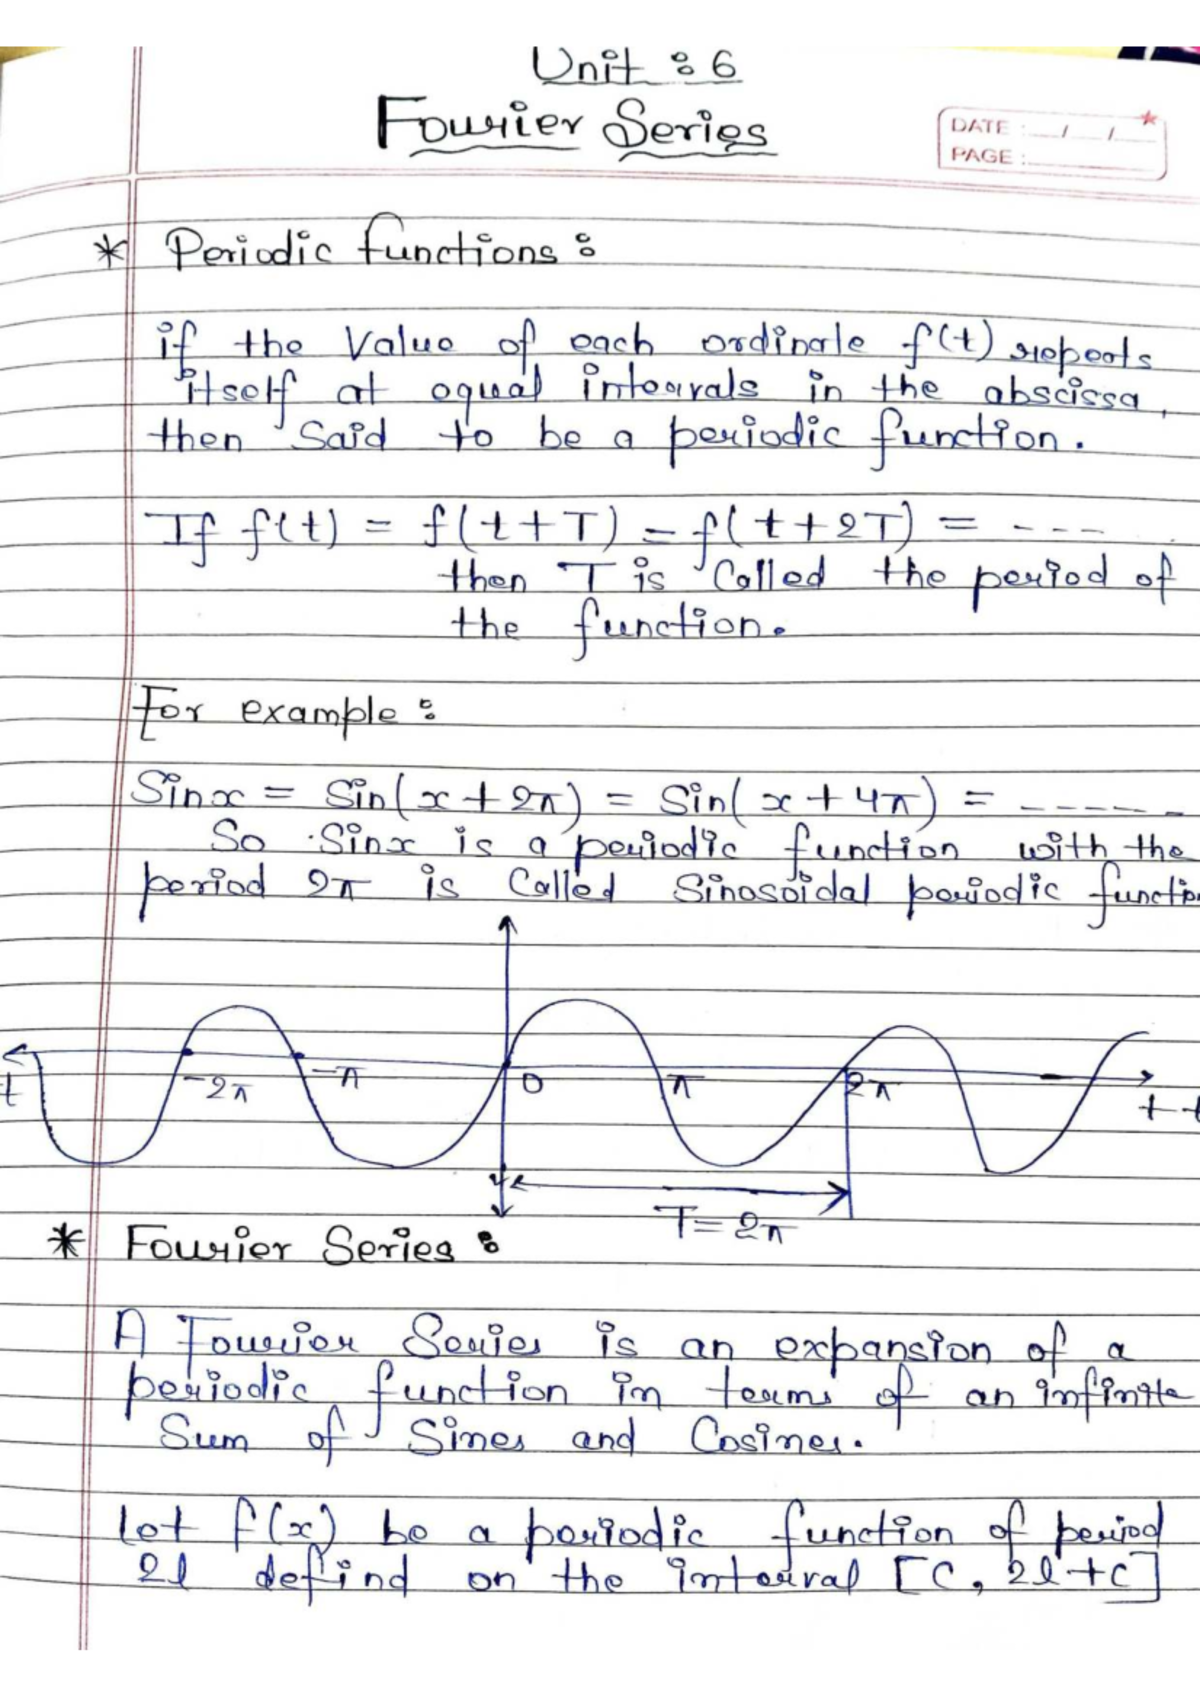 Unit : 6
Fourier Series
DATE : __/__/__
PAGE :
* Periodic functions :
if the Value of each ordinate f(t) repeats
itself at equal intervals in the abscissa,
then said to be a periodic function.
If f(t) = f(t+T) = f(t+2T) = ----
then T is called the period of
the function.
For example :
Sinx = Sin(x+2π) = Sin(x+4π) = ------
So Sinx is a periodic function with the
period 2π is Called Sinosoidal periodic functio
t -2π -π 0 π 2π +t
T=2π
* Fourier Series :
A Fourier Series is an expansion of a
periodic function in terms of an infinite
Sum of Sines and Cosines.
Let f(x) be a periodic function of period
2l defind on the interval [C, 2l+C]